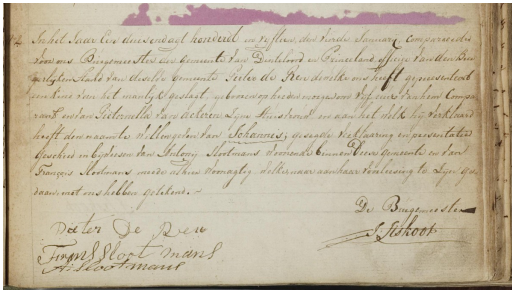 In het Jaar Een duizend agt honderd en vyftien, den vierde January, compareerde
voor ons Burgemeester der Gemeente van Dinteloord en Princeland, officier van den Bur
gerlyken Staat van dezelve Gemeente Pieter de Reu dewelke ons heeft gepresenteerd
een kind van het manlyk geslacht, geboren op heden morgen voor vyf uur van hem Compa
rant en van Pieternella van
zyne Huisvrouw en aan het welk hij verklaard
heeft den naam te willen geven van Johannis; gezegde verklaring en presentatien
geschied in bywesen van Antony Slootmans woonende binnen deese gemeente en van
François Slootmans mede alhier woonagtig welke, naar aan haar voorlesing te zyn ge
daan, met ons hebben getekend. ~
De Burgemeester
Pieter De Reu
Frans Sloot mans
A: Slootmans